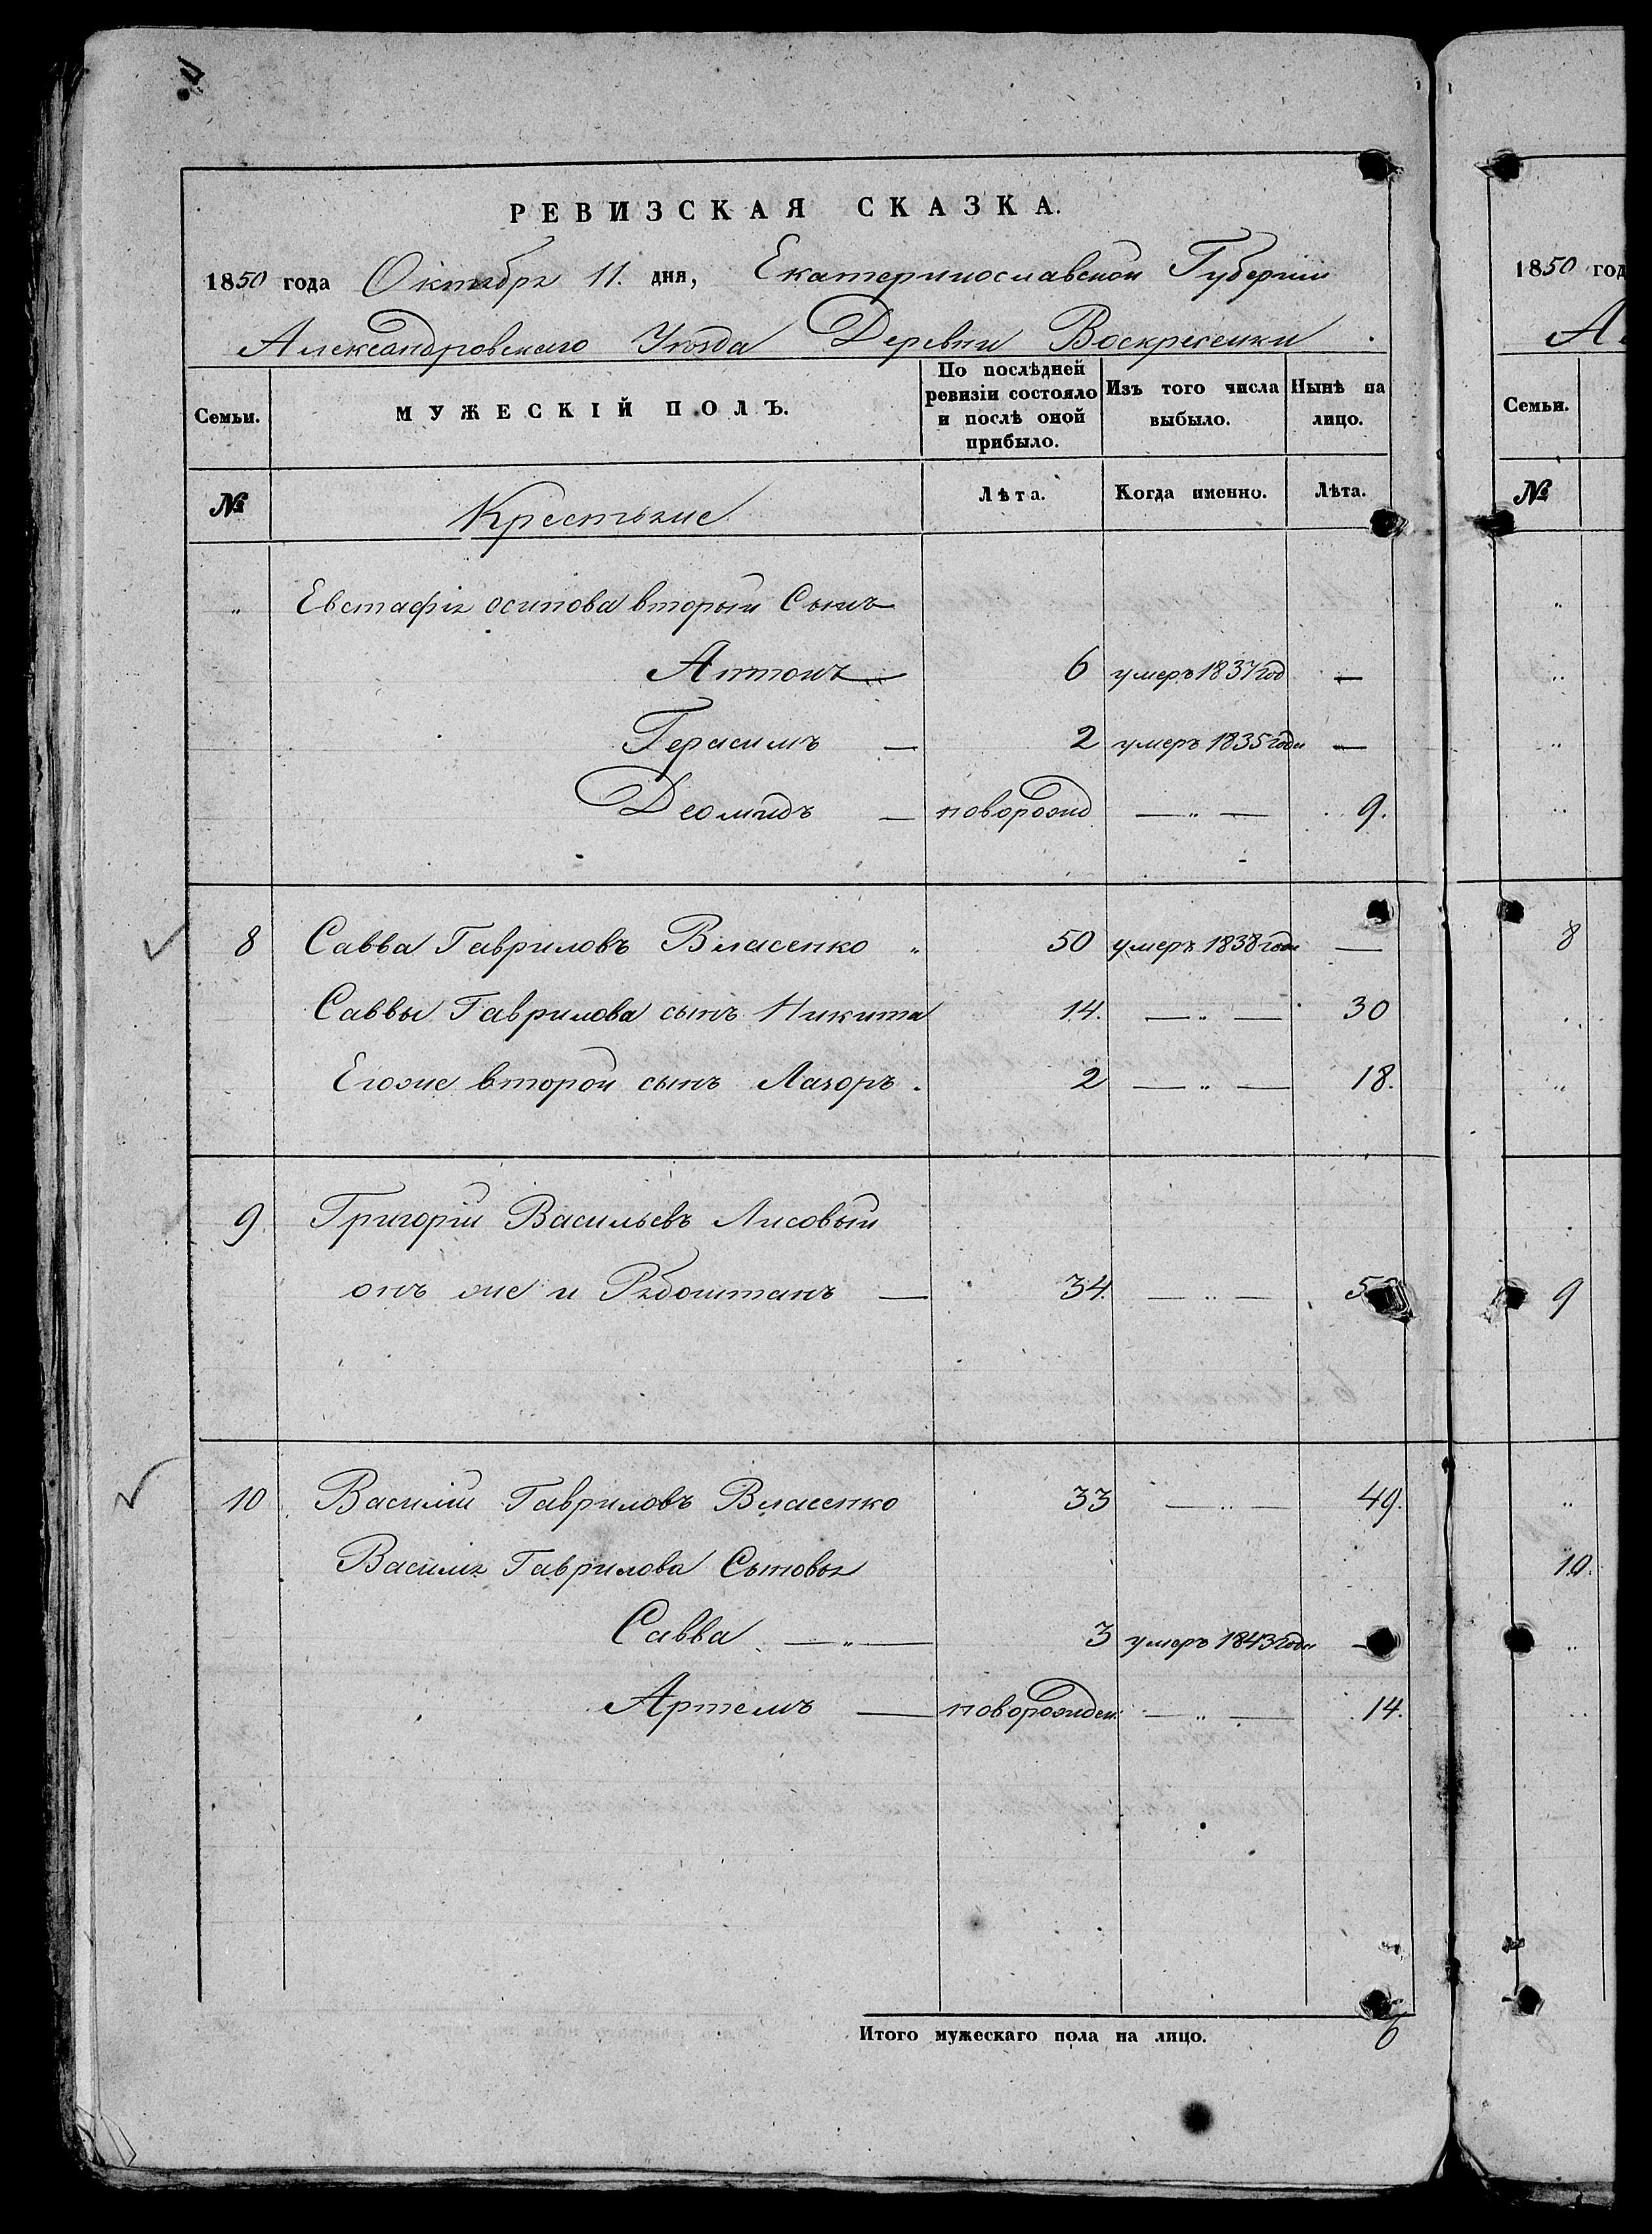 РЕВИЗСКАЯ СКАЗКА.
1850 года Октября 11. дня, Екатеринославской Губернии
Александровскаго Уѣзда Деревни Воскресенки
Семьи. МУЖЕСКІЙ ПОЛЪ. По послѣдней ревизіи состояло и послѣ оной прибыло. Изъ того числа выбыло. Нынѣ на лицо.
№ Крестьяне Лѣта. Когда именно. Лѣта.
„ Евстафія осипова вторый Сынъ
Антонъ — 6 умеръ 1837 год —
Герасимъ — 2 умеръ 1835 года —
Деомидъ — новорожд — „ — 9.
8 Савва Гавриловъ Власенко „ 50 умеръ 1838 года —
Саввы Гаврилова сынъ Никита 14. — „ — 30
Егоже второй сынъ Лазоръ. 2 — „ — 18.
9. Григорій Васильевъ Лисовый
онъ же и — 34. — „ — 5
10 Василій Гавриловъ Власенко 33 — „ — 49.
Василія Гаврилова Сыновья
Савва — „ — 3 умеръ 1843 года —
Артемъ — новорожден. — „ — 14.
Итого мужескаго пола на лицо. 6
1850 год
А
Семьи.
№
8
9
10.